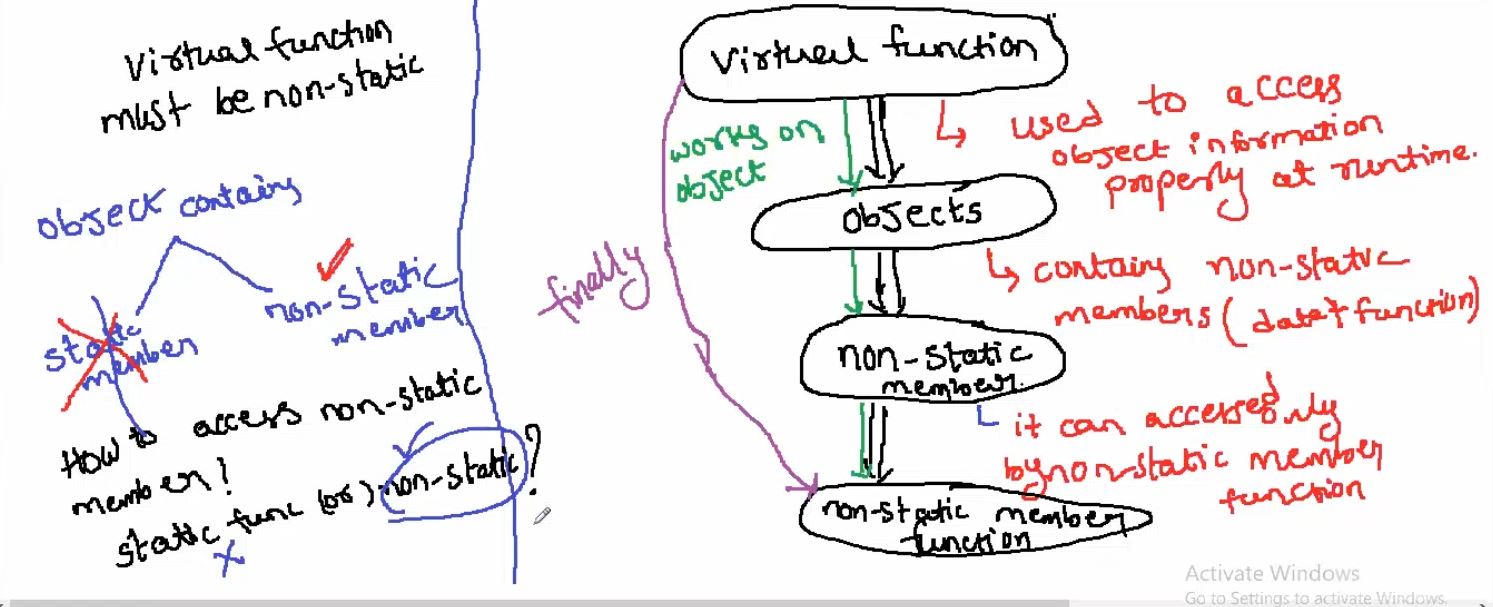 virtual function
must be non-static
object contains
static
member
non-static
member
How to access non-static
member?
static func (or) non-static?
x
virtual function
works on
object
used to access
object information
properly at runtime.
objects
finally
contains non-static
members (data+function)
non-static
member.
it can accessed only
by non-static member
function
non-static member
function
Activate Windows
Go to Settings to activate Windows.